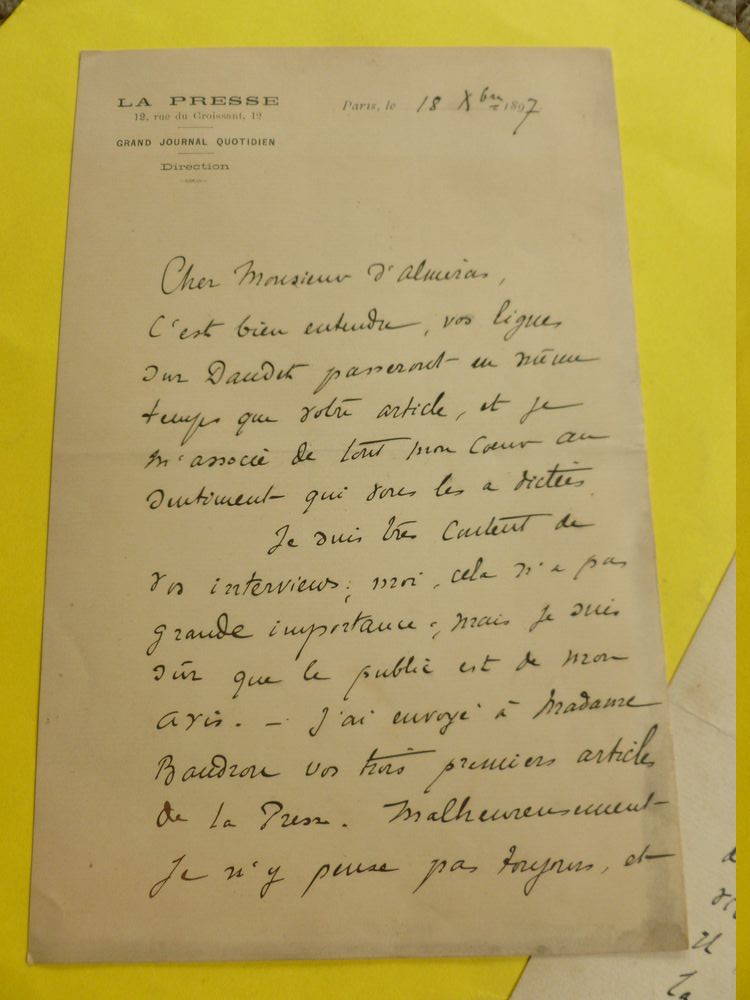 LA PRESSE
12, rue du Croissant, 12
GRAND JOURNAL QUOTIDIEN
Direction
Paris, le 18 Xbre 1897
Cher Monsieur d'Almeras,
C'est bien entendu, vos lignes
sur Daudet passeront en même
temps que votre article, et je
m'associe de tout mon cœur au
sentiment qui vous les a dictées
Je suis très content de
vos interviews; moi, cela n'a pas
grande importance; mais je suis
sûr que le public est de mon
avis. – J'ai envoyé à Madame
vos trois premiers articles
de la Presse. Malheureusement
je n'y pense pas toujours, et